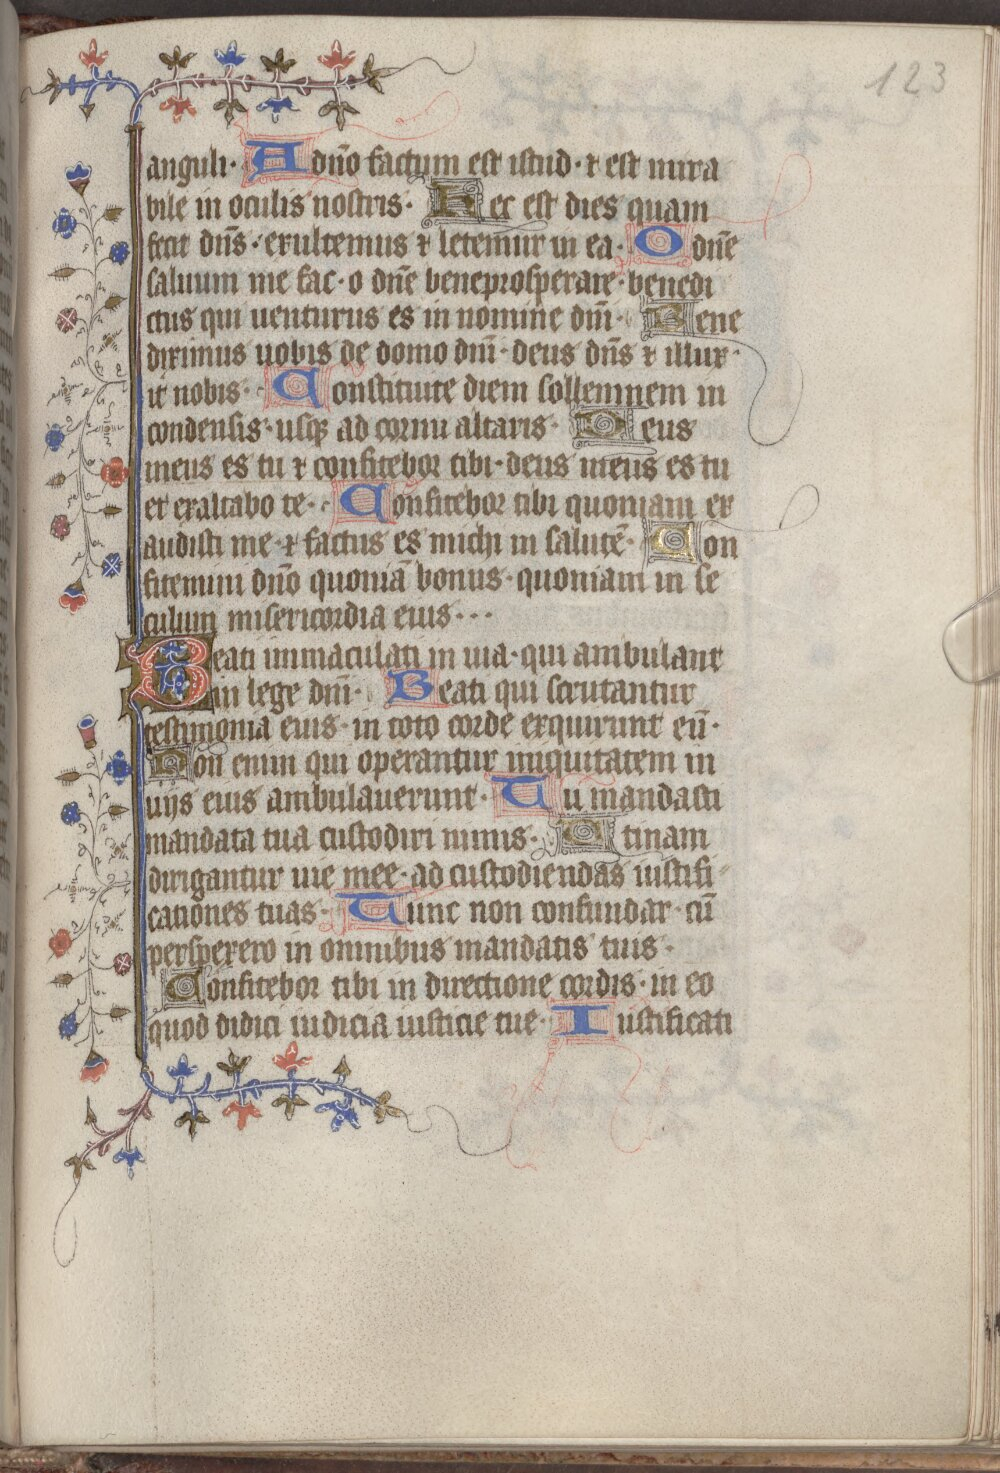 123
anguli· A dño factum est istud· ⁊ est mira
bile in oculis nostris· Hec est dies quam
fecit dñs· exultemus ⁊ letemur in ea· O dñe
saluum me fac· o dñe beneprosperare· benedi
ctus qui uenturus es in nomine dñi· Bene
diximus uobis de domo dñi· deus dñs ⁊ illux·
it nobis· Constituite diem sollemnem in
condensis· usqꝫ ad cornu altaris· Deus
meus es tu ⁊ confitebor tibi· deus meus es tu
et exaltabo te· Confitebor tibi quoniam ex
audisti me· ⁊ factus es michi in salutē· Con
fitemini dño quoniā bonus· quoniam in se
culum misericordia eius···
Beati immaculati in uia· qui ambulant
in lege dñi· Beati qui scrutantur
testimonia eius· in toto corde exquirunt eū·
Non enim qui operantur iniquitatem in
uijs eius ambulauerunt· Tu mandasti
mandata tua custodiri nimis· Utinam
dirigantur uie mee· ad custodiendas iustifi
cationes tuas· Tunc non confundar· cū
perspexero in omnibus mandatis tuis·
Confitebor tibi in directione cordis· in eo
quod didici iudicia iusticie tue· Iustificati